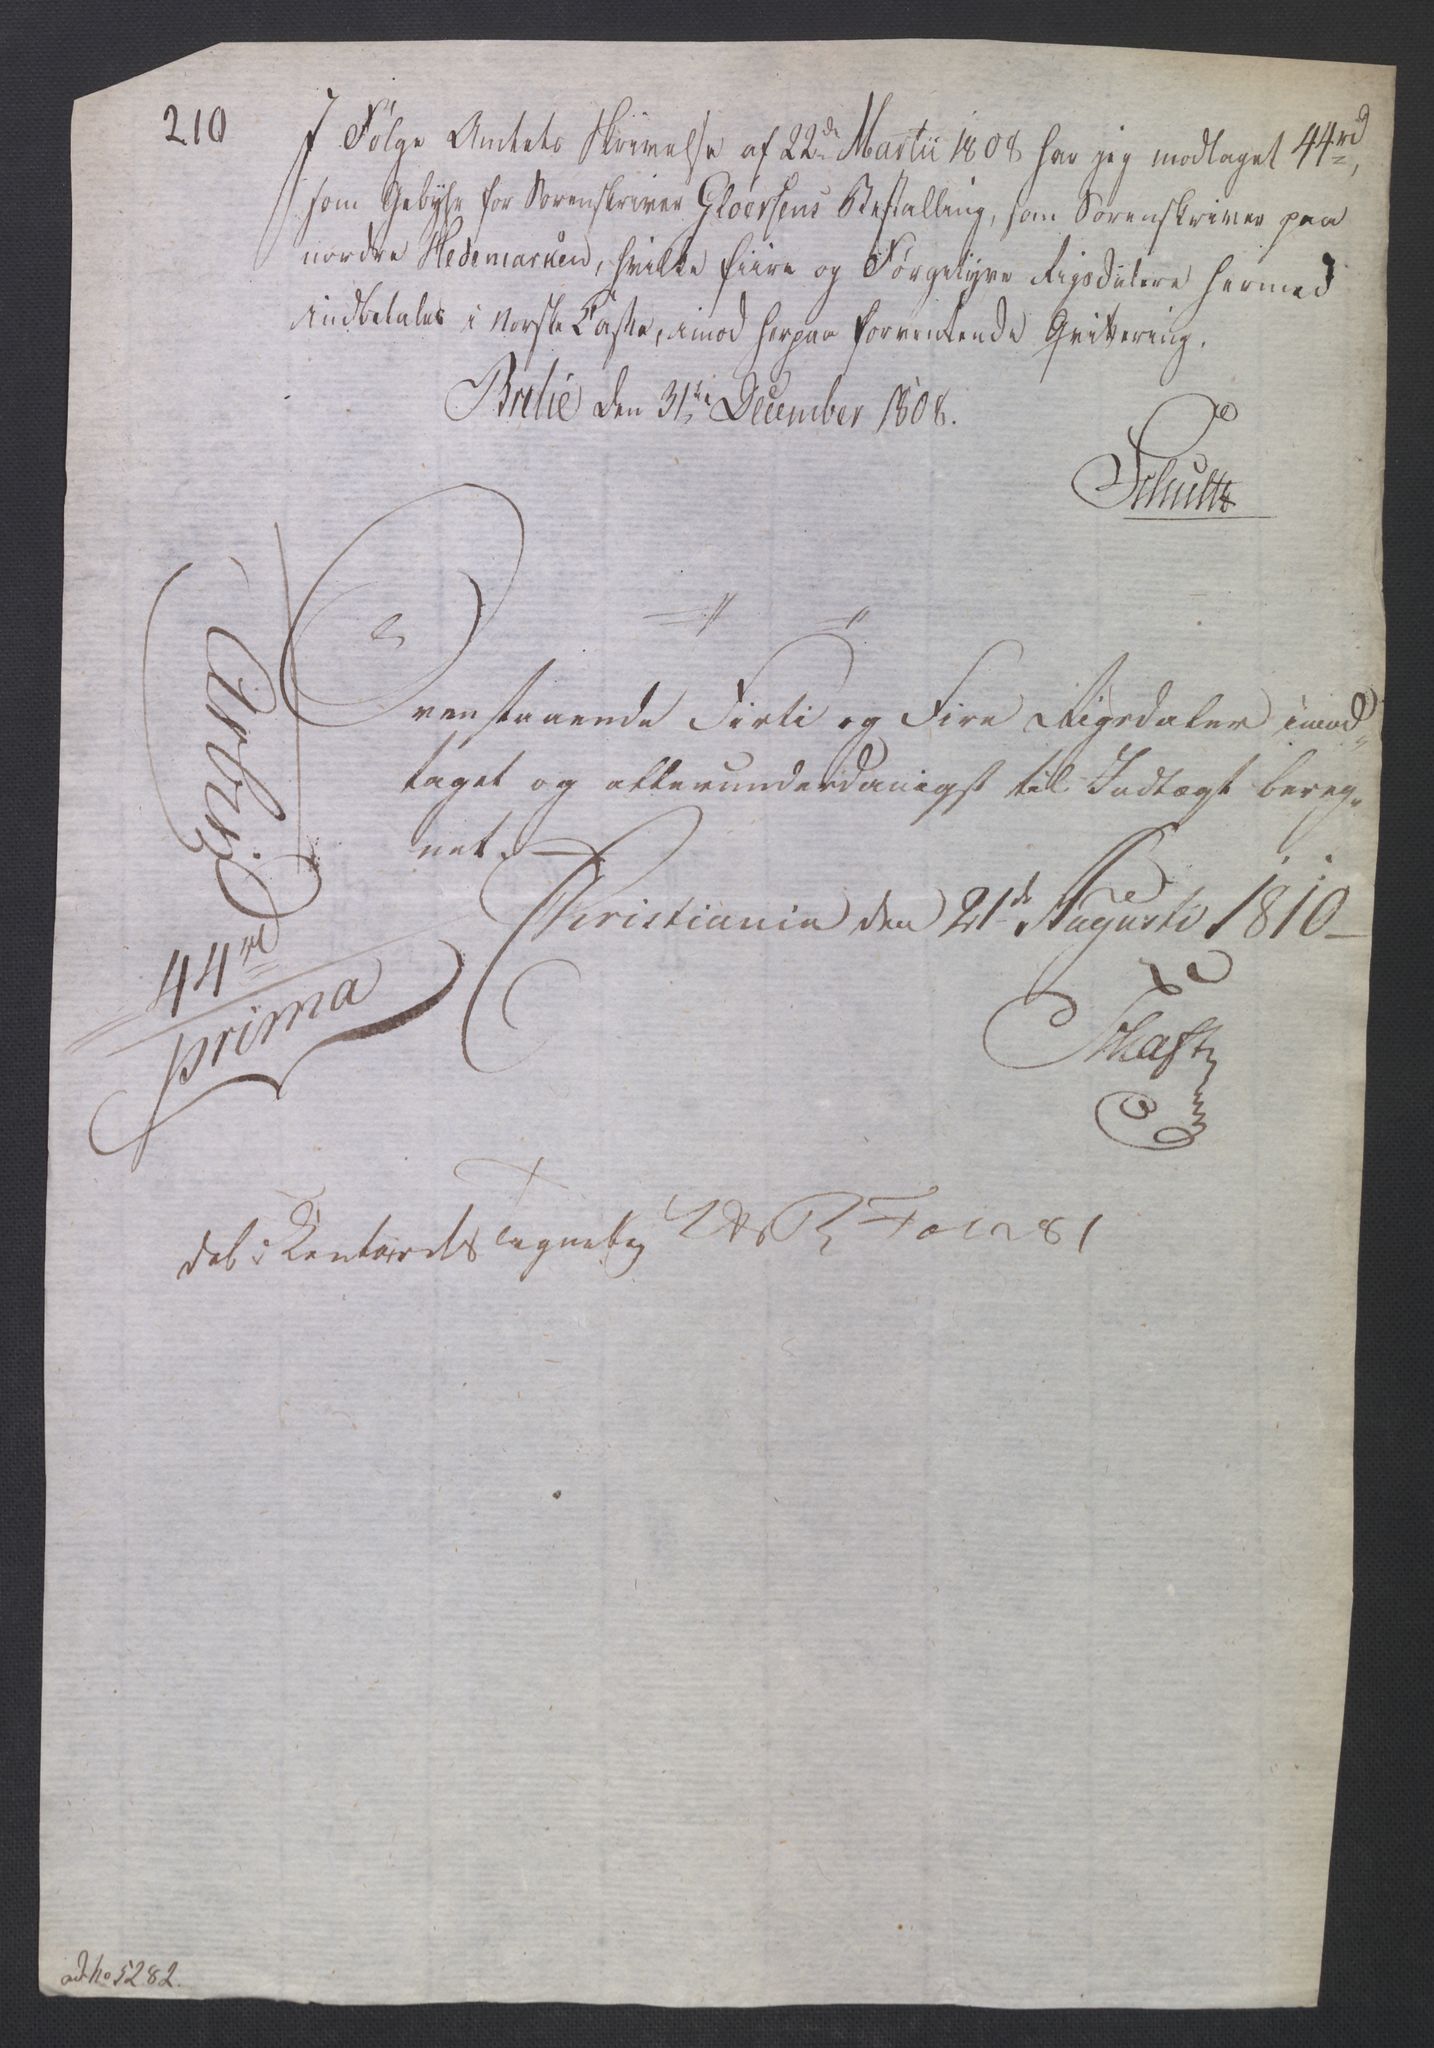 210
I Følge Amtets Skrivelse af 22de Martii 1808 har jeg modtaget 44rd,
som Gebyhr for Sorenskriver Gloersens Bestalling, som Sorenskriver paa
nordre Hedemarken, hvilke fiire og Førgetyve Rigsdalere hermed
indbetales i Norske Casse, imod herpaa forventende Qvittering.
den 31te December 1808.
Schultz
Ovenstaaende Firti og Fire Rigsdaler imod-
taget og allerunderdanigst til Indtægt bereg-
net.
Christiania den 21de Augusti 1810
44rd
prima
ad No 5282.